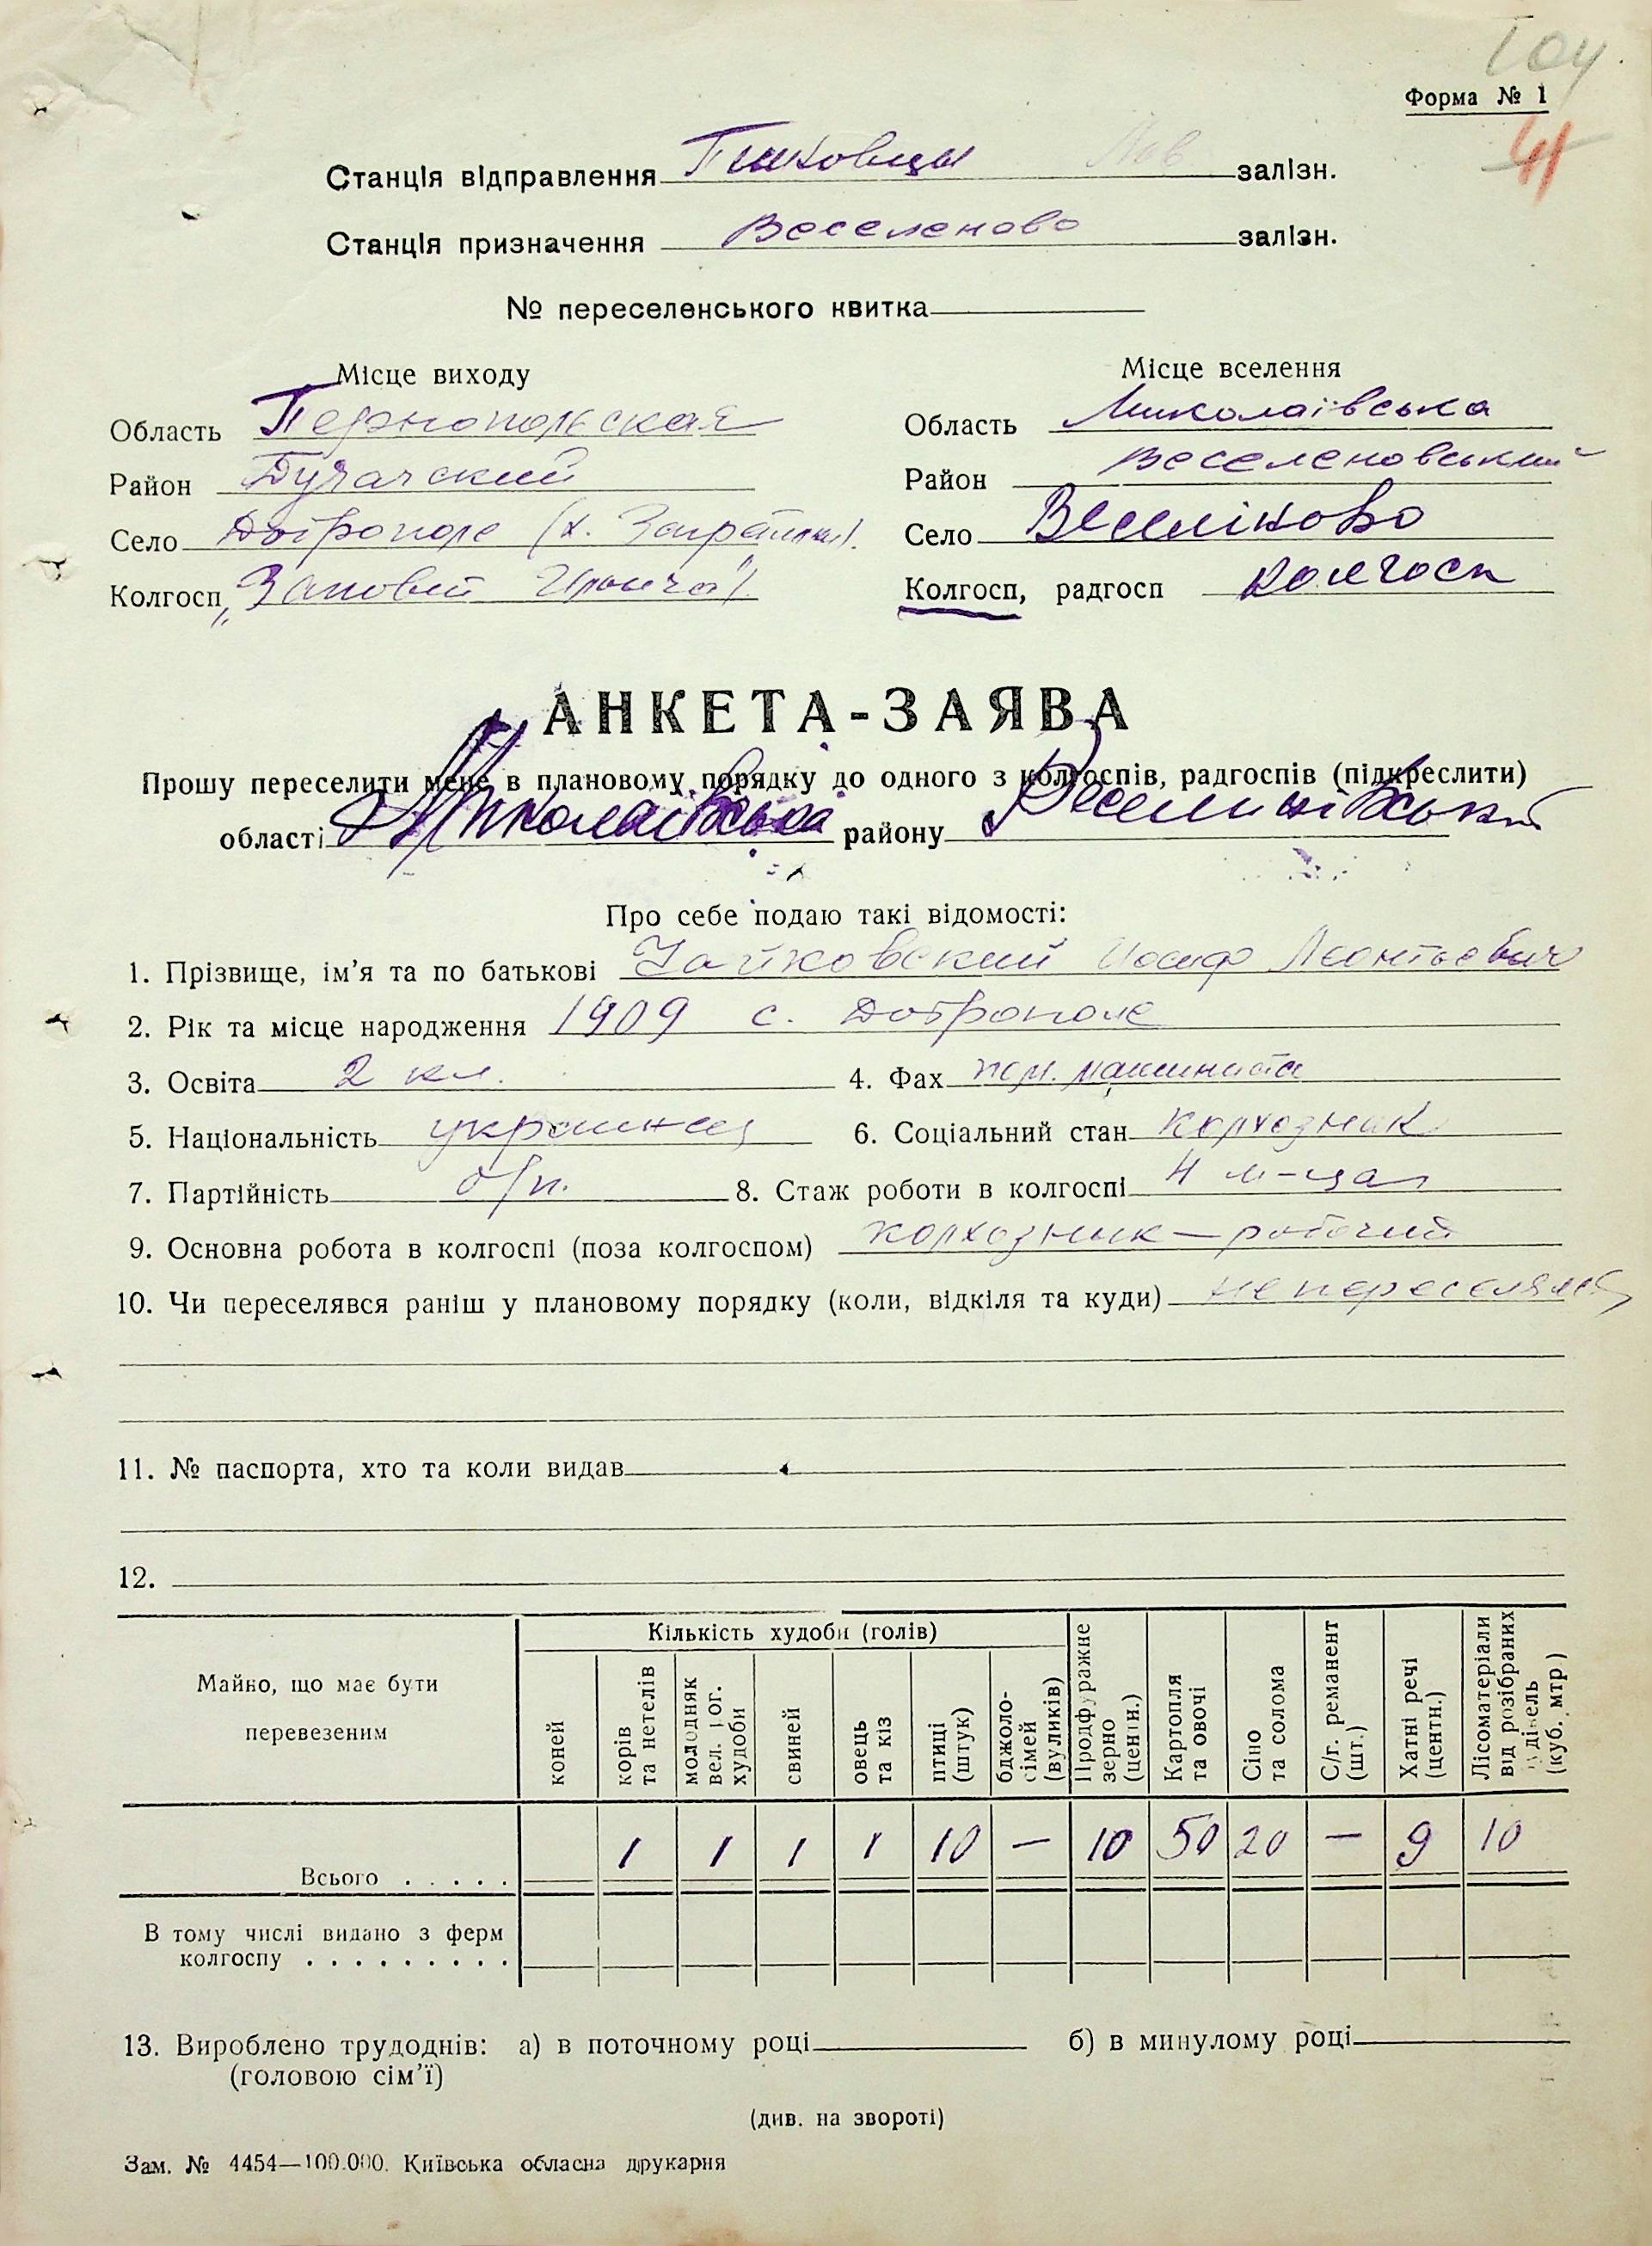 104
Форма № 1
41
Станція відправлення Пиковцы Лв залізн.
Станція призначення Веселеново залізн.
№ переселенського квитка
Місце виходу
Область Тернопольская
Район Бучачский
Село Доброполе (х.
Колгосп „Заповіт Ілліча"
Місце вселення
Область Миколаівська
Район Веселеновський
Село Веселіново
Колгосп, радгосп колгосп
АНКЕТА-ЗАЯВА
Прошу переселити мене в плановому порядку до одного з колгоспів, радгоспів (підкреслити)
області Миколаівська району Веселинівський
Про себе подаю такі відомості:
1. Прізвище, ім'я та по батькові Чайковский Иосиф Леонтьевич
2. Рік та місце народження 1909 с. Доброполе
3. Освіта 2 кл. 4. Фах пом. машиниста
5. Національність украинец 6. Соціальний стан колхозник
7. Партійність б/п. 8. Стаж роботи в колгоспі 4 м-ца
9. Основна робота в колгоспі (поза колгоспом) колхозник — рабочий
10. Чи переселявся раніш у плановому порядку (коли, відкіля та куди) не переселялся
11. № паспорта, хто та коли видав
12.
Майно, що має бути перевезеним
Кількість худоби (голів)
коней
корів та нетелів
молодняк вел. рог. худоби
свиней
овець та кіз
птиці (штук)
бджоло-сімей (вуликів)
Продфуражне зерно (центн.)
Картопля та овочі
Сіно та солома
С/г. реманент (шт.)
Хатні речі (центн.)
Лісоматеріали від розібраних будівель (куб. мтр)
Всього . . . . . 1 1 1 1 10 — 10 50 20 — 9 10
В тому числі видано з ферм
колгоспу . . . . . . . . .
13. Вироблено трудоднів: а) в поточному році б) в минулому році
(головою сім'ї)
(див. на звороті)
Зам. № 4454—100.000. Київська обласна друкарня